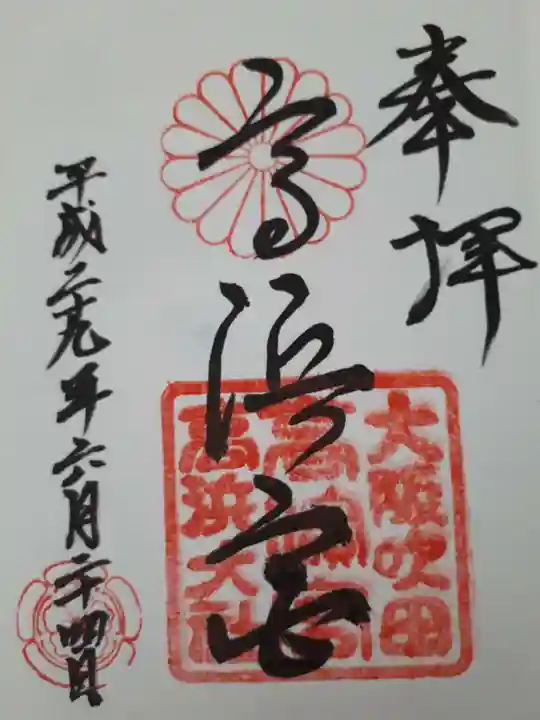 奉拝
高浜宮
大阪吹田
高浜宮
高浜大社
平成二十九年六月二十四日